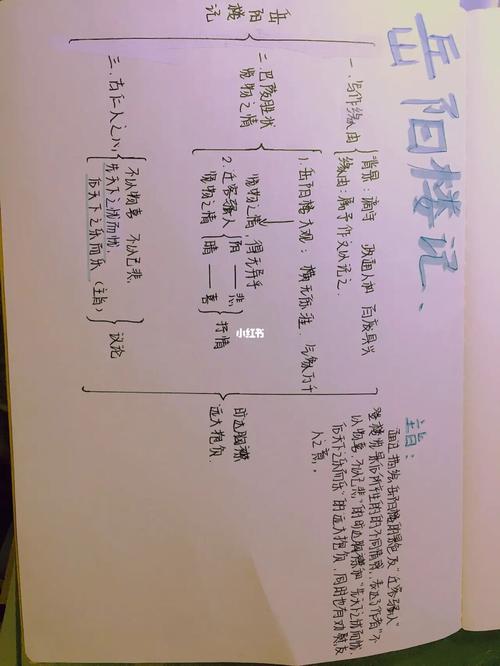 岳阳楼记、
岳阳楼记
一.写作缘由
背景:谪守 政通人和 百废具兴
缘由:属予作文以记之.
二.巴陵胜状
览物之情
1.岳阳楼大观: 横无际涯. 气象万千
览物之情,得无异乎
2.迁客骚人
览物之情
阴——悲
晴——喜
抒情
三.古仁人之心
不以物喜 不以己悲.
先天下之忧而忧.
后天下之乐而乐(主旨)
议论
旷达胸襟
远大抱负
主旨:
通过描绘岳阳楼的景色及"迁客骚人"
登楼览景后所产生的的不同情感,表达了作者"不
以物喜.不以己悲"的旷达胸襟和"先天下之忧而忧.
后天下之乐而乐"的远大抱负,同时也有劝慰友
人之意。
小红书